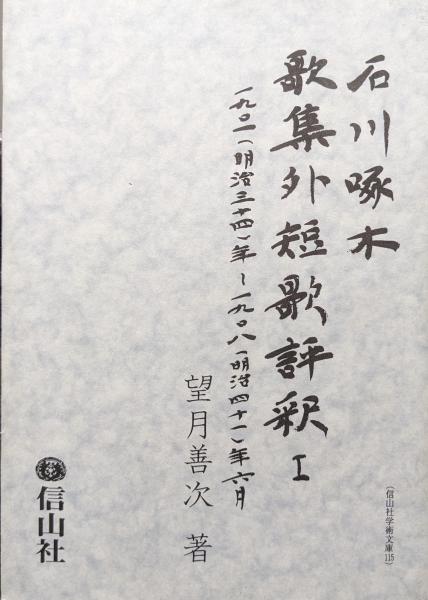 石川啄木
歌集外短歌評釈I
一九〇一(明治三十四)年〜一九〇八(明治四十一)年六月
望月善次 著
信山社
(信山社学術文庫115)